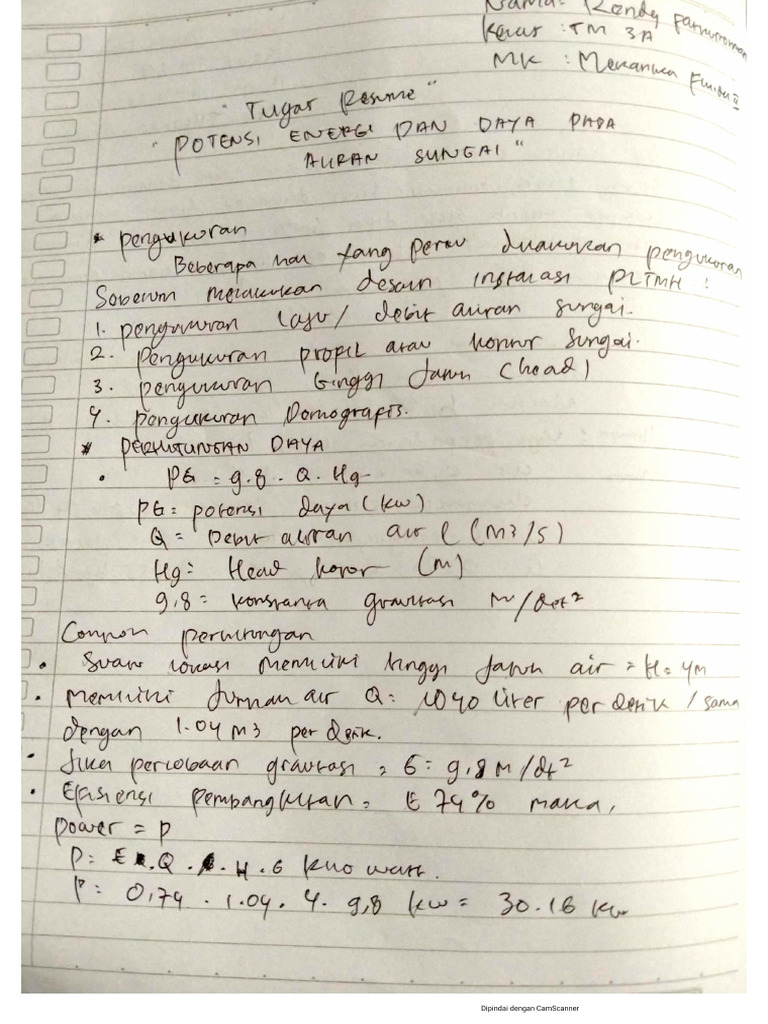 Nama: Randy Fathurroman
Kelas : TM 3A
MK : Mekanika Fluida II
"Tugas Resume"
"POTENSI ENERGI DAN DAYA PADA
ALIRAN SUNGAI"
* Pengukuran
Beberapa hal yang perlu dilakukan pengukuran
Sebelum melakukan desain instalasi PLTMH :
1. pengukuran laju / debit aliran sungai.
2. Pengukuran profil atau kontur sungai.
3. pengukuran tinggi jatuh (head)
4. pengukuran Domografis.
* PERHITUNGAN DAYA
• PG = 9.8 . Q . Hg
PG = potensi daya (kw)
Q = Debit aliran air l (M3/S)
Hg = Head kotor (m)
9,8 = konstanta gravitasi M/det²
Contoh perhitungan
• Suatu lokasi memiliki tinggi jatuh air = H = 4M
• Memiliki Jumlah air Q = 1040 liter per detik / sama
dengan 1.04 M3 per detik.
• Jika percobaan gravitasi = G = 9,8 M/dt²
• Efisiensi pembangkitan = E 74% maka,
power = P
P = E . Q . H . G kilo watt.
P = 0,74 . 1.04 . 4 . 9,8 kw = 30.16 kw
Dipindai dengan CamScanner